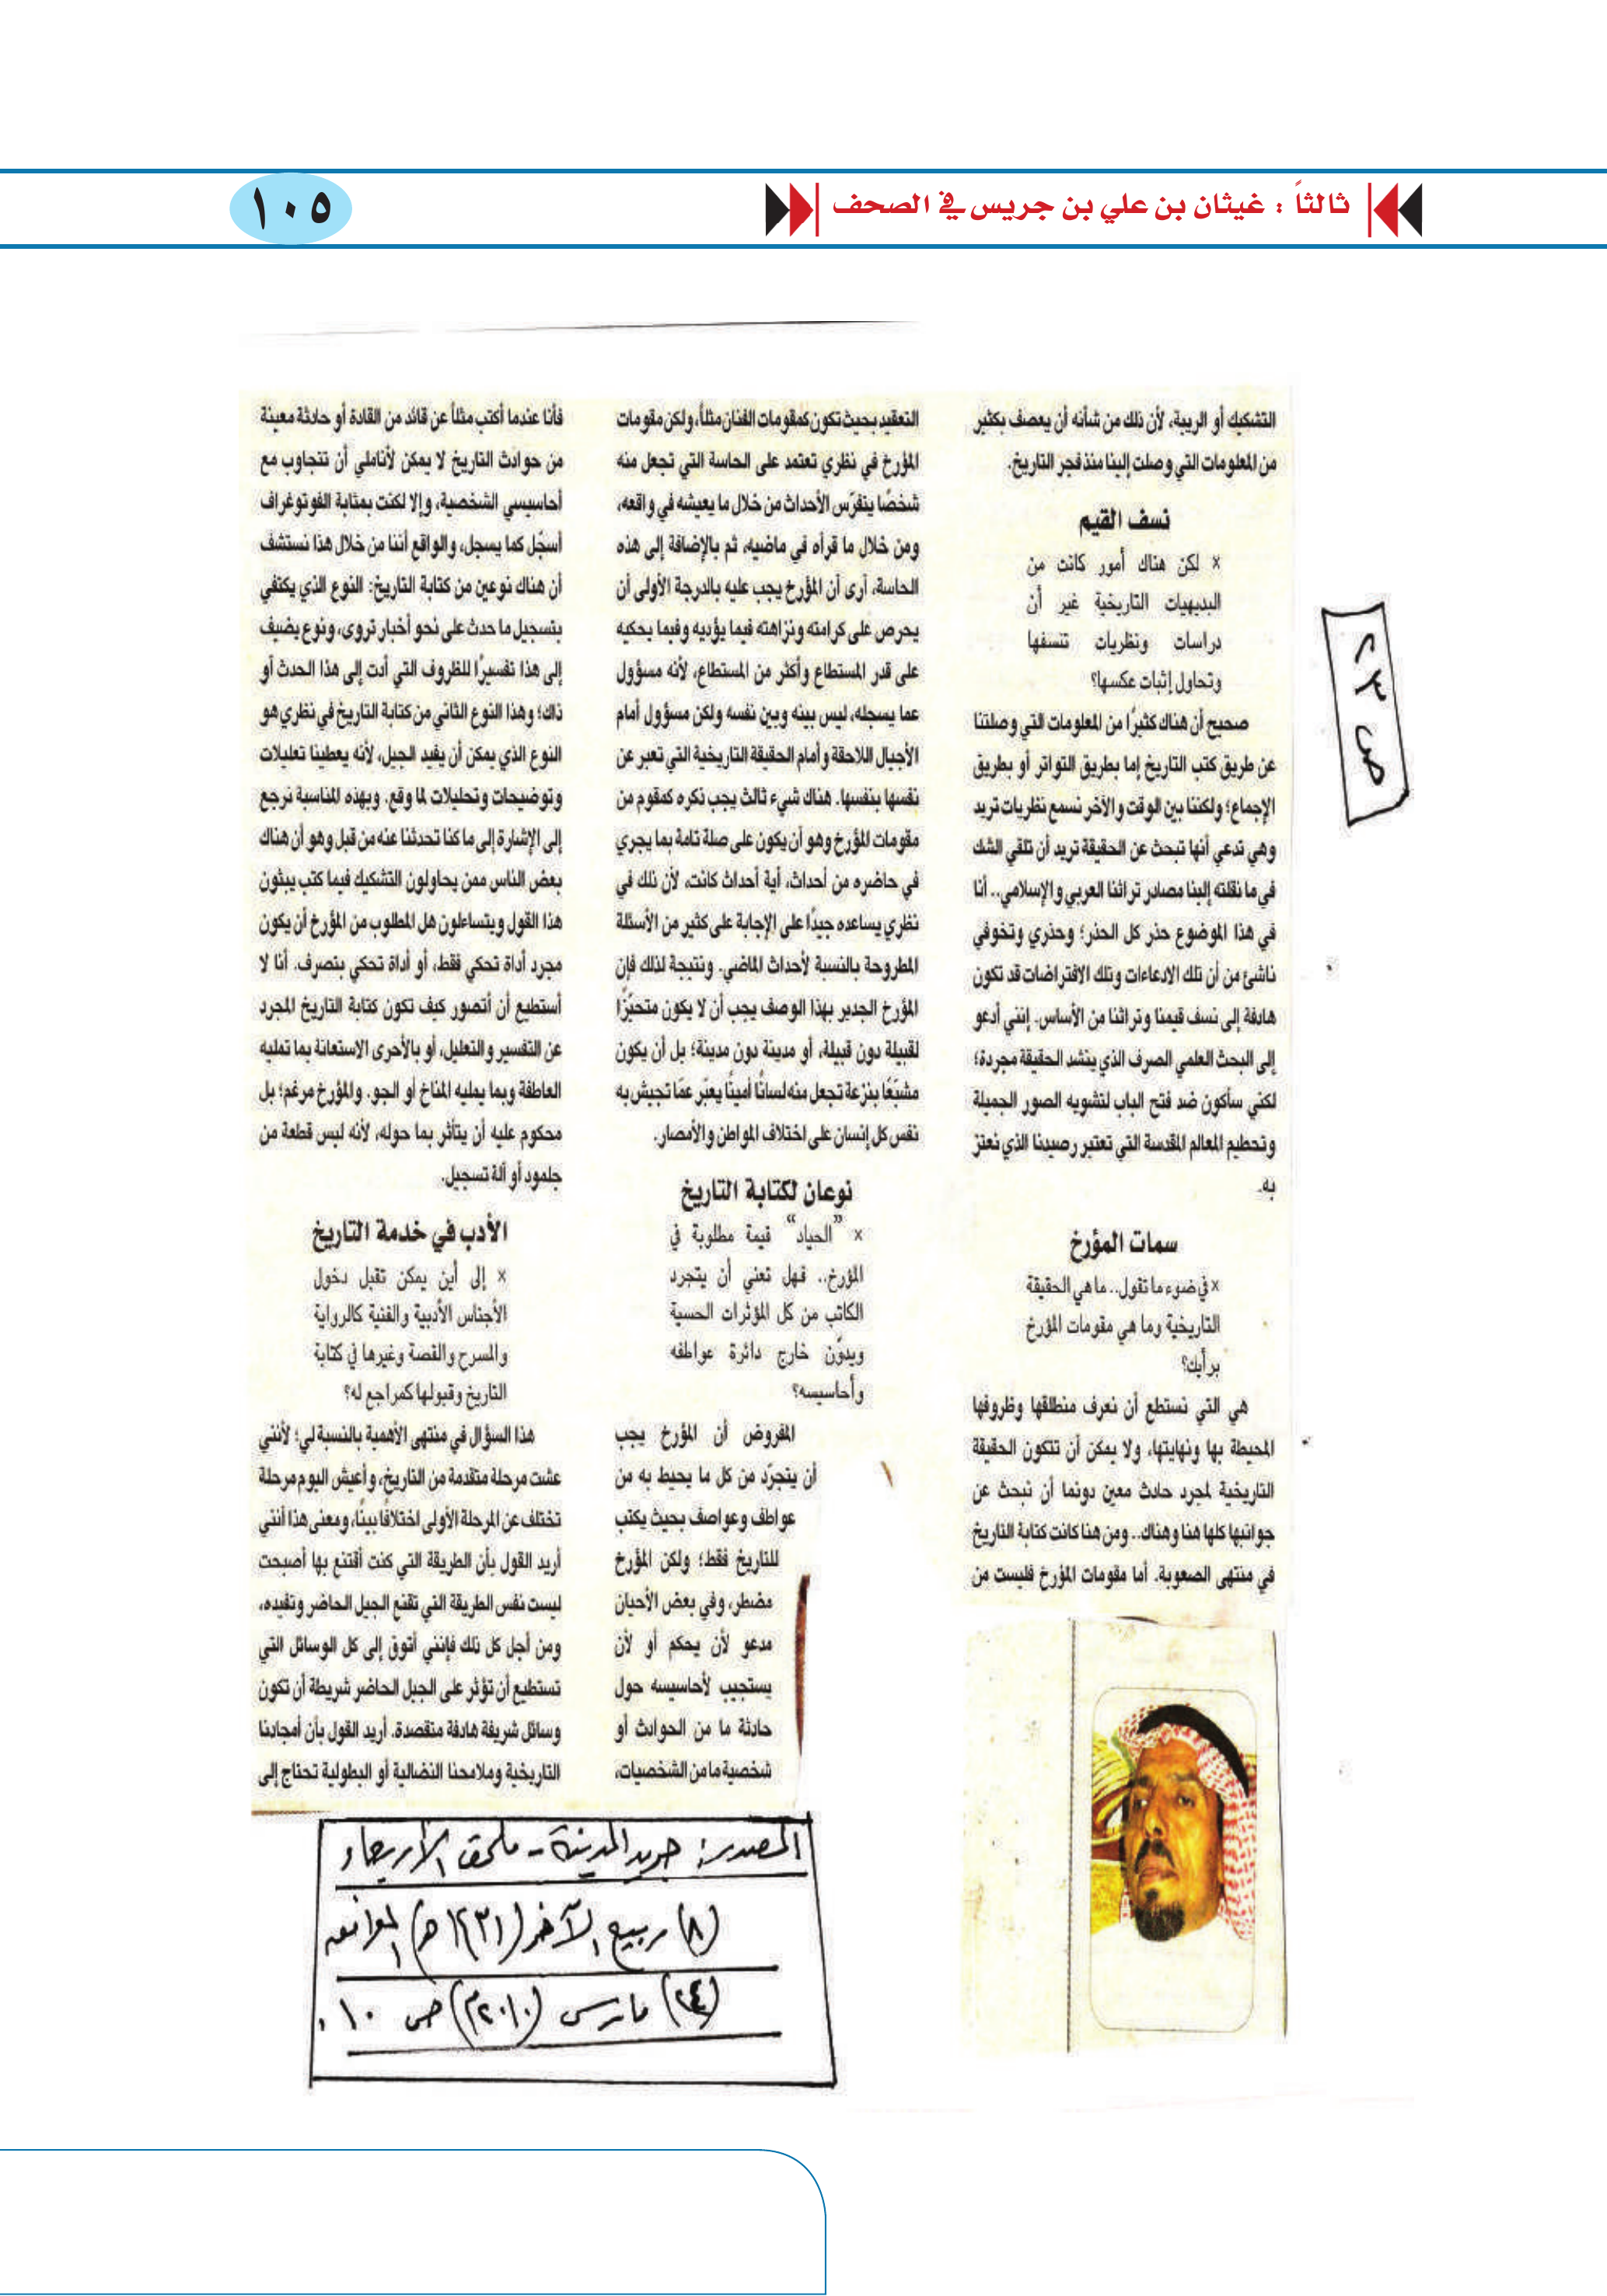 ثالثاً : غيثان بن علي بن جريس في الصحف
١٠٥
ص ٢٣
التشكيك أو الريبة، لأن ذلك من شأنه أن يعصف بكثير
من المعلومات التي وصلت إلينا منذ فجر التاريخ.
نسف القيم
× لكن هناك أمور كانت من
البديهيات التاريخية غير أن
دراسات ونظريات تنسفها
وتحاول إثبات عكسها؟
صحيح أن هناك كثيرًا من المعلومات التي وصلتنا
عن طريق كتب التاريخ إما بطريق التواتر أو بطريق
الإجماع؛ ولكننا بين الوقت والآخر نسمع نظريات تريد
وهي تدعي أنها تبحث عن الحقيقة تريد أن تلقي الشك
في ما نقلته إلينا مصادر تراثنا العربي والإسلامي.. أنا
في هذا الموضوع حذر كل الحذر؛ وحذري وتخوفي
ناشئ من أن تلك الادعاءات وتلك الافتراضات قد تكون
هادفة إلى نسف قيمنا وتراثنا من الأساس. إنني أدعو
إلى البحث العلمي الصرف الذي ينشد الحقيقة مجردة؛
لكني سأكون ضد فتح الباب لتشويه الصور الجميلة
وتحطيم المعالم المقدسة التي تعتبر رصيدنا الذي نعتز
به.
سمات المؤرخ
× في ضوء ما تقول.. ما هي الحقيقة
التاريخية وما هي مقومات المؤرخ
برأيك؟
هي التي نستطع أن نعرف منطلقها وظروفها
المحيطة بها ونهايتها، ولا يمكن أن تتكون الحقيقة
التاريخية لمجرد حادث معين دونما أن نبحث عن
جوانبها كلها هنا وهناك.. ومن هنا كانت كتابة التاريخ
في منتهى الصعوبة. أما مقومات المؤرخ فليست من
التعقيد بحيث تكون كمقومات الفنان مثلاً، ولكن مقومات
المؤرخ في نظري تعتمد على الحاسة التي تجعل منه
شخصًا يتفرّس الأحداث من خلال ما يعيشه في واقعه،
ومن خلال ما قرأه في ماضيه، ثم بالإضافة إلى هذه
الحاسة، أرى أن المؤرخ يجب عليه بالدرجة الأولى أن
يحرص على كرامته ونزاهته فيما يؤديه وفيما يحكيه
على قدر المستطاع وأكثر من المستطاع، لأنه مسؤول
عما يسجله، ليس بينه وبين نفسه ولكن مسؤول أمام
الأجيال اللاحقة وأمام الحقيقة التاريخية التي تعبر عن
نفسها بنفسها. هناك شيء ثالث يجب ذكره كمقوم من
مقومات المؤرخ وهو أن يكون على صلة تامة بما يجري
في حاضره من أحداث، أية أحداث كانت، لأن ذلك في
نظري يساعده جيدًا على الإجابة على كثير من الأسئلة
المطروحة بالنسبة لأحداث الماضي. ونتيجة لذلك فإن
المؤرخ الجدير بهذا الوصف يجب أن لا يكون متحيّزًا
لقبيلة دون قبيلة، أو مدينة دون مدينة؛ بل أن يكون
مشبّعًا بنزعة تجعل منه لسانًا أمينًا يعبّر عمّا تجيش به
نفس كل إنسان على اختلاف المواطن والأمصار.
نوعان لكتابة التاريخ
× "الحياد" قيمة مطلوبة في
المؤرخ.. فهل تعني أن يتجرد
الكاتب من كل المؤثرات الحسية
ويدوّن خارج دائرة عواطفه
وأحاسيسه؟
المفروض أن المؤرخ يجب
أن يتجرّد من كل ما يحيط به من
عواطف وعواصف بحيث يكتب
للتاريخ فقط؛ ولكن المؤرخ
مضطر، وفي بعض الأحيان
مدعو لأن يحكم أو لأن
يستجيب لأحاسيسه حول
حادثة ما من الحوادث أو
شخصية ما من الشخصيات،
فأنا عندما أكتب مثلاً عن قائد من القادة أو حادثة معينة
من حوادث التاريخ لا يمكن لأناملي أن تتجاوب مع
أحاسيسي الشخصية، وإلا لكنت بمثابة الفوتوغراف
أسجّل كما يسجل، والواقع أننا من خلال هذا نستشف
أن هناك نوعين من كتابة التاريخ: النوع الذي يكتفي
بتسجيل ما حدث على نحو أخبار تروى، ونوع يضيف
إلى هذا تفسيرًا للظروف التي أدت إلى هذا الحدث أو
ذاك؛ وهذا النوع الثاني من كتابة التاريخ في نظري هو
النوع الذي يمكن أن يفيد الجيل، لأنه يعطينا تعليلات
وتوضيحات وتحليلات لما وقع. وبهذه المناسبة نرجع
إلى الإشارة إلى ما كنا تحدثنا عنه من قبل وهو أن هناك
بعض الناس ممن يحاولون التشكيك فيما كتب يبثون
هذا القول ويتساءلون هل المطلوب من المؤرخ أن يكون
مجرد أداة تحكي فقط، أو أداة تحكي بتصرف. أنا لا
أستطيع أن أتصور كيف تكون كتابة التاريخ المجرد
عن التفسير والتعليل، أو بالأحرى الاستعانة بما تمليه
العاطفة وبما يمليه المناخ أو الجو. والمؤرخ مرغم؛ بل
محكوم عليه أن يتأثر بما حوله، لأنه ليس قطعة من
جلمود أو آلة تسجيل.
الأدب في خدمة التاريخ
× إلى أين يمكن تقبل دخول
الأجناس الأدبية والفنية كالرواية
والمسرح والقصة وغيرها في كتابة
التاريخ وقبولها كمراجع له؟
هذا السؤال في منتهى الأهمية بالنسبة لي؛ لأنني
عشت مرحلة متقدمة من التاريخ، وأعيش اليوم مرحلة
تختلف عن المرحلة الأولى اختلافًا بينًا، ومعنى هذا أنني
أريد القول بأن الطريقة التي كنت أقتنع بها أصبحت
ليست نفس الطريقة التي تقنع الجيل الحاضر وتفيده،
ومن أجل كل ذلك فإنني أتوق إلى كل الوسائل التي
تستطيع أن تؤثر على الجيل الحاضر شريطة أن تكون
وسائل شريفة هادفة متقصدة. أريد القول بأن أمجادنا
التاريخية وملامحنا النضالية أو البطولية تحتاج إلى
المصدر: جريد المدينة - ملحق الأربعاء
(٨) ربيع الآخر (١٤٣١هـ) الموافق
(٢٤) مارس (٢٠١٠م) ص ١٠.